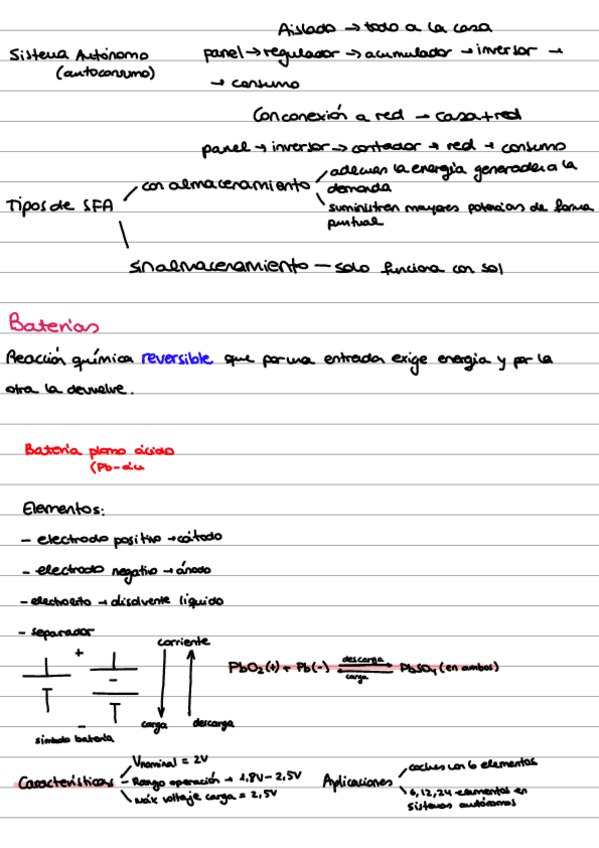 Aislado → todo a la casa
Sistema Autónomo
(autoconsumo)
panel → regulador → acumulador → inversor →
→ consumo
Con conexión a red → casa + red
panel → inversor → contador → red → consumo
Tipos de SFA
con almacenamiento
adecuan la energía generada a la
demanda
suministren mayores potencias de forma
puntual
sin almacenamiento — solo funciona con sol
Baterías
Reacción química reversible que por una entrada exige energía y por la
otra la devuelve.
Batería plomo ácido
(Pb-
Elementos:
- electrodo positivo → cátodo
- electrodo negativo → ánodo
- electrolito → disolvente líquido
- separador
+
-
-
símbolo batería
corriente
carga
descarga
PbO2(+) + Pb(-) descarga carga PbSO4 (en ambos)
Características
Vnominal = 2V
Rango operación → 1,8V - 2,5V
máx voltaje carga = 2,5V
Aplicaciones
coches con 6 elementos
6, 12, 24 elementos en
sistemas autónomos